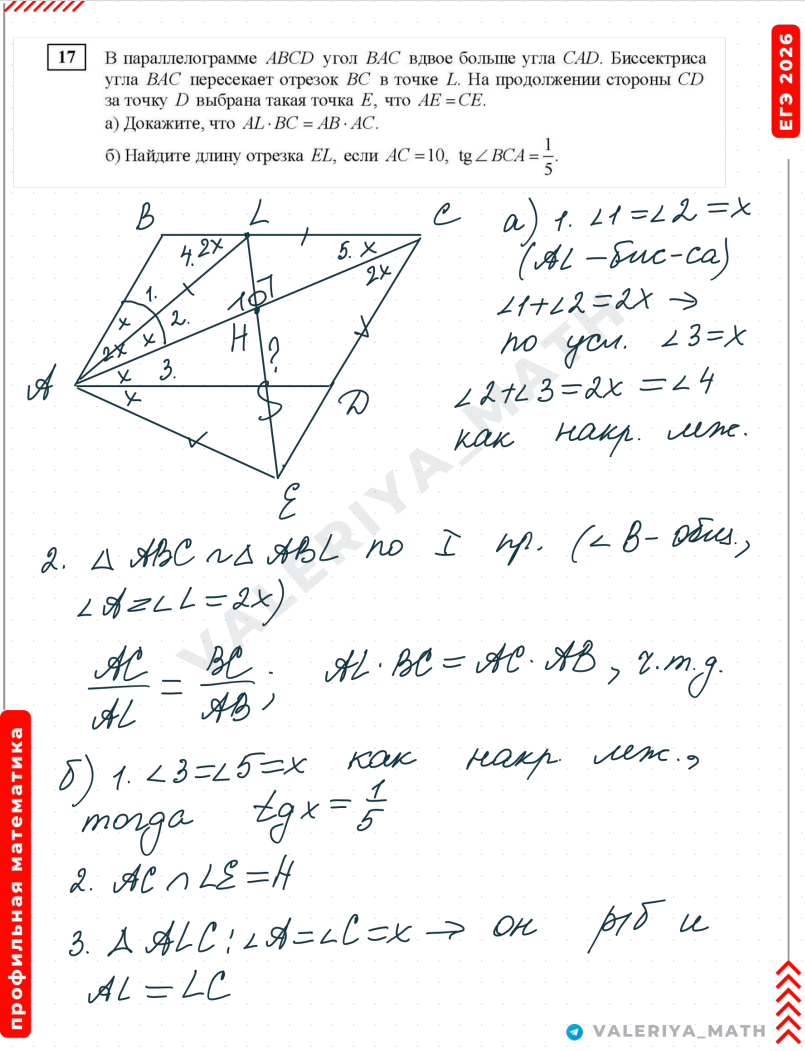 ЕГЭ 2026
17 В параллелограмме ABCD угол BAC вдвое больше угла CAD. Биссектриса
угла BAC пересекает отрезок BC в точке L. На продолжении стороны CD
за точку D выбрана такая точка E, что AE = CE.
а) Докажите, что AL · BC = AB · AC.
б) Найдите длину отрезка EL, если AC = 10, tg∠BCA = 1/5.
B L C
4. 2x 5. x
2x
1. x 2. x
H ?
2x 3. x
A x D
E
а) 1. ∠1=∠2=x
(AL – бис-са)
∠1+∠2=2x →
по усл. ∠3=x
∠2+∠3=2x=∠4
как накр. леж.
2. △ ABC ~ △ ABL по I пр. (∠B – общ.,
∠A=∠L=2x)
AC/AL = BC/AB; AL · BC = AC · AB, ч.т.д.
б) 1. ∠3=∠5=x как накр. леж.,
тогда tg x = 1/5
2. AC ∩ LE = H
3. △ ALC: ∠A=∠C=x → он р/б и
AL = LC
профильная математика
VALERIYA_MATH
VALERIYA_MATH